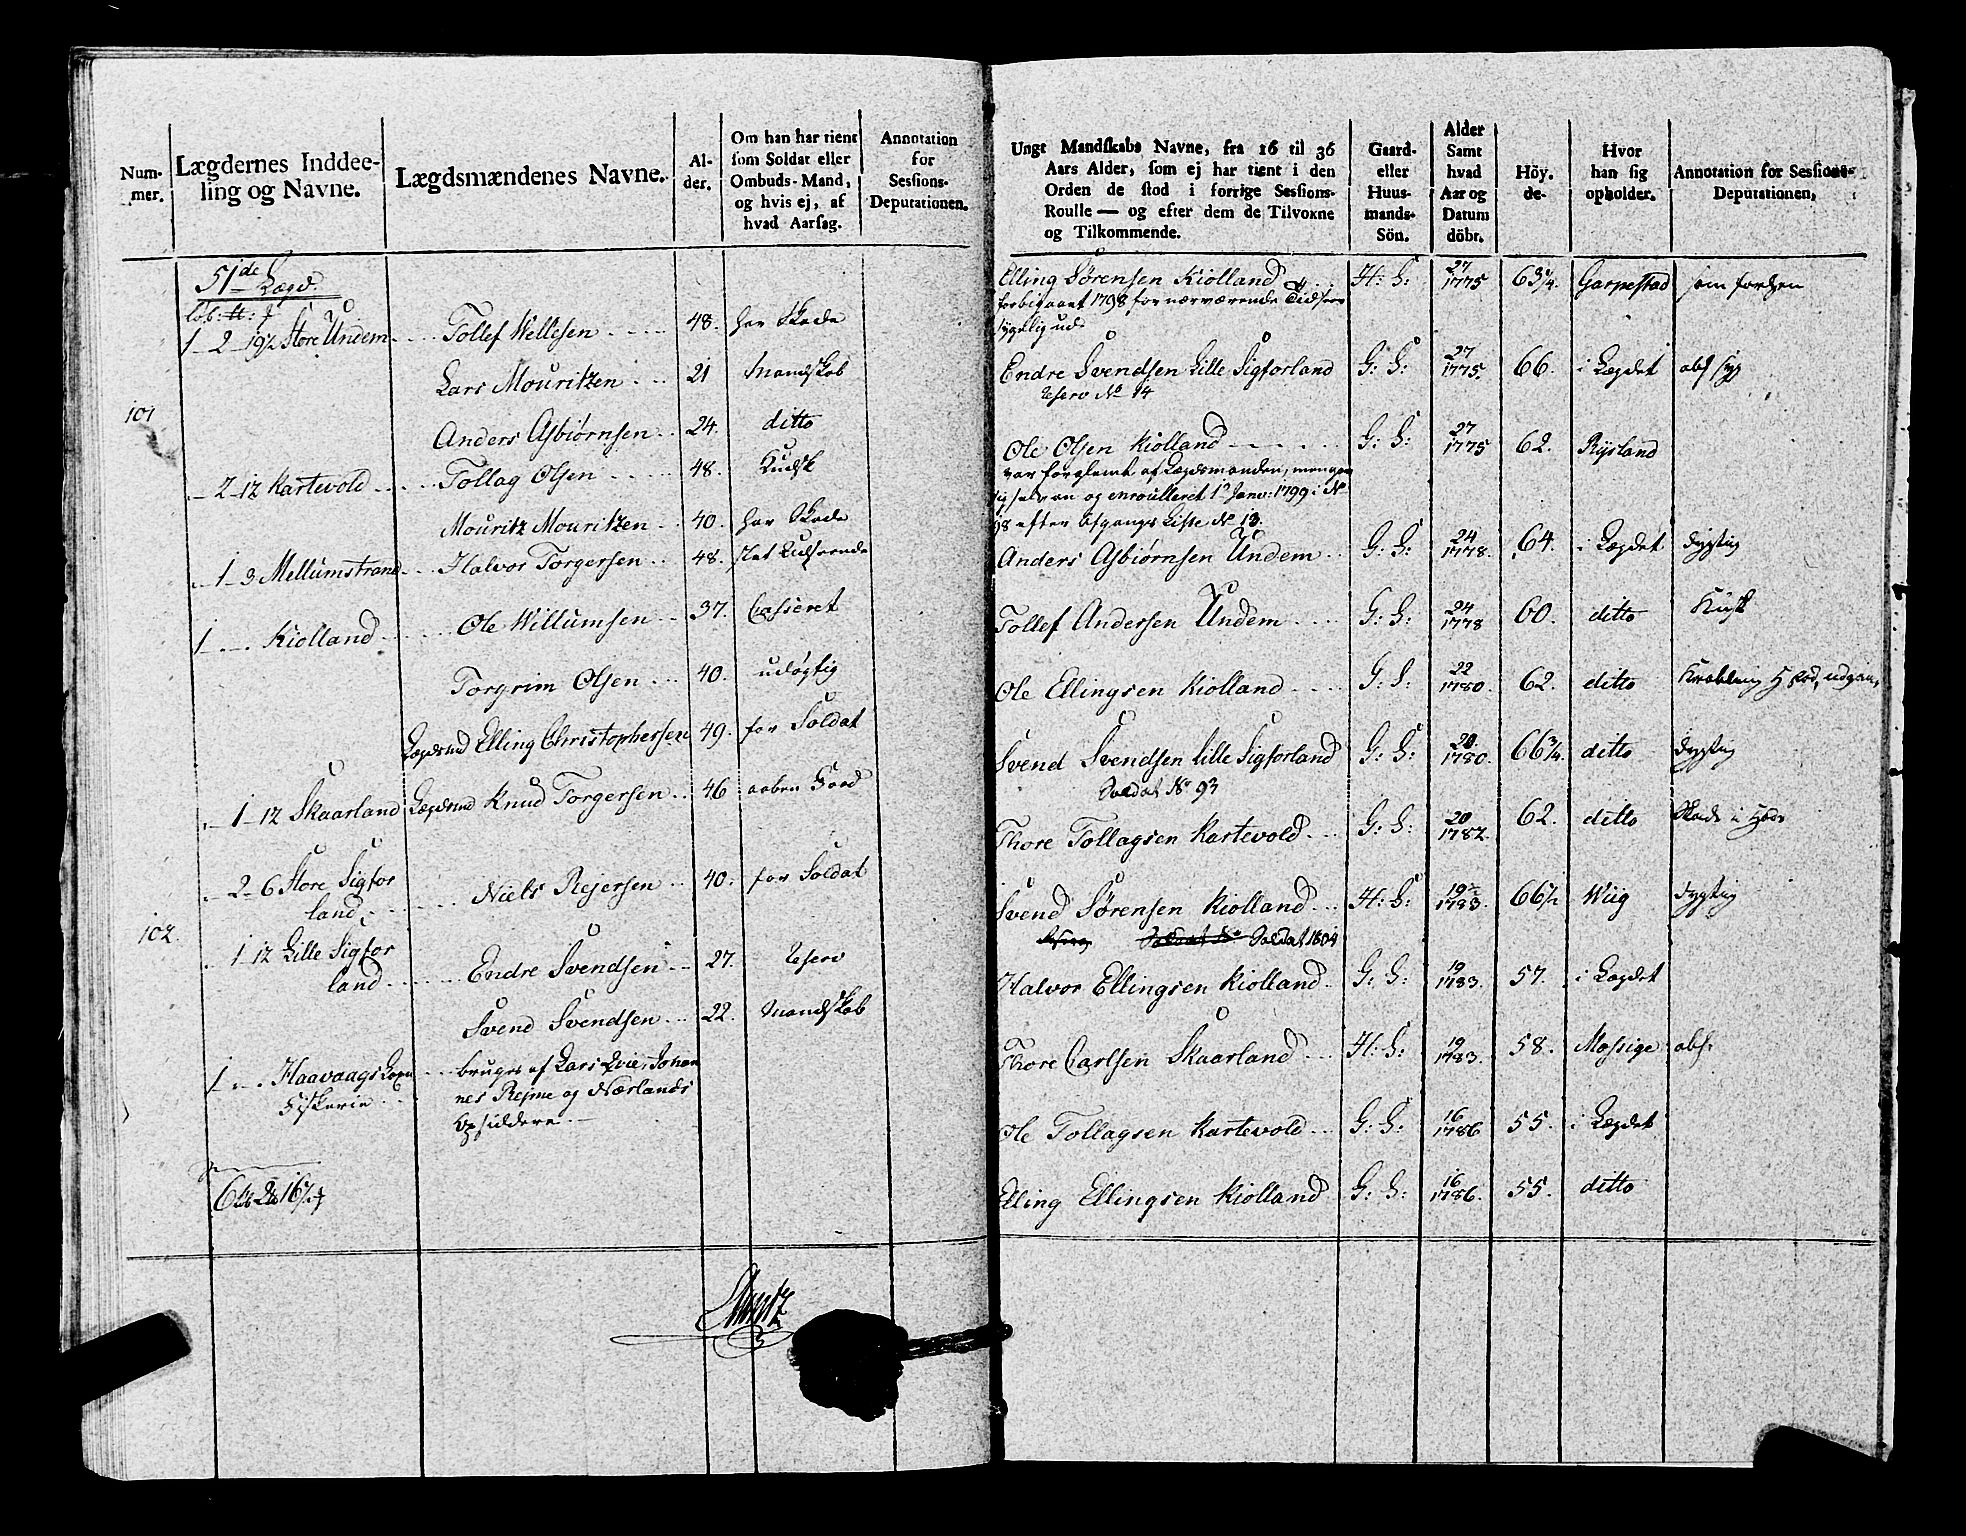 Num-
mer.
Lægdernes Inddee-
ling og Navne.
Lægdsmændenes Navne.
Al-
der.
Om han har tient
som Soldat eller
Ombuds-Mand,
og hvis ej, af
hvad Aarsag.
Annotation
for
Sessions-
Deputationen.
51de Lægd.
løb: tt: f
1 - 2 - 19½ Store Undem Tollef Wellesen 48. har Skade
Lars Mouritzen 21 Mandskab
101
Anders Asbiørnsen 24. ditto
- 2 - 12 Kartevold Tollag Olsen 48. Kudsk
Mouritz Mouritzen 40. har Skade
- 1 - 3 Mellumstrand Halvor Torgersen 48. slet Udseende
1 - - Kiolland Ole Willumsen 37. Casseret
Torgrim Olsen 40. udøgtig
Lægdsmd Elling Christophersen 49. for Soldat
- 1 - 12 Skaarland Lægdsmd Knud Torgersen 46 aaben
- 2 - 6 Store Sigfor
land Niels Rejersen 40. for Soldat
102.
- 1 - 12 Lille Sigfor
land Endre Svendsen 27. Reserv
Svend Svendsen 22. Mandskab
1 - - Haavaags Laxe
Fiskerie
bruges af Lars Qvie, Johan
nes Rejme og Nærlands
Opsiddere
6 løb 2 tt 16½ f
Ungt Mandskabs Navne, fra 16 til 36
Aars Alder, som ej har tient i den
Orden de stod i forrige Sessions-
Roulle — og efter dem de Tilvoxne
og Tilkommende.
Gaard-
eller
Huus-
mands-
Sön.
Alder
Samt
hvad
Aar og
Datum
döbt.
Höy-
de-
Hvor
han sig
opholder.
Annotation for Sessions-
Deputationen,
Elling Sørensen Kiolland H: S: 27 1775 63¼. Garpestad som forhen
forbigaaet 1798 for nærværende Tid
sygelig ud.
Endre Svendsen Lille Sigforland G: S: 27 1775. 66. i Lægdet abs syg
Reserv No 14
Ole Olsen Kiolland G: S: 27 1775 62. Rysland
var forglemt af Lægdsmanden,
og enroulleret 1e Janv: 1799 i No
98 efter Afgangs Liste No 13.
Anders Asbiørnsen Undem G: S: 24 1778. 64. i Lægdet dygtig
Tollef Andersen Undem G: S: 24 1778 60. ditto
Ole Ellingsen Kiolland G: S. 22 1780. 62. ditto
Svend Svendsen Lille Sigforland G: S: 20. 1780. 66¾. ditto dygtig
Soldat No 93
Thore Tollagsen Kartevold G: S: 20 1782. 62. ditto Skade i
Svend Sørensen Kiolland H: S: 19½ 1783. 66½ Wiig dygtig
Soldat No Soldat 1804
Halvor Ellingsen Kiolland G: S: 19 1783. 57. i Lægdet
Thore Carlsen Skaarland H: S: 19 1783. 58. Mossige abs.
Ole Tollagsen Kartevold G: S: 16 1786 55. i Lægdet
Elling Ellingsen Kiolland G: S: 16 1786. 55. ditto